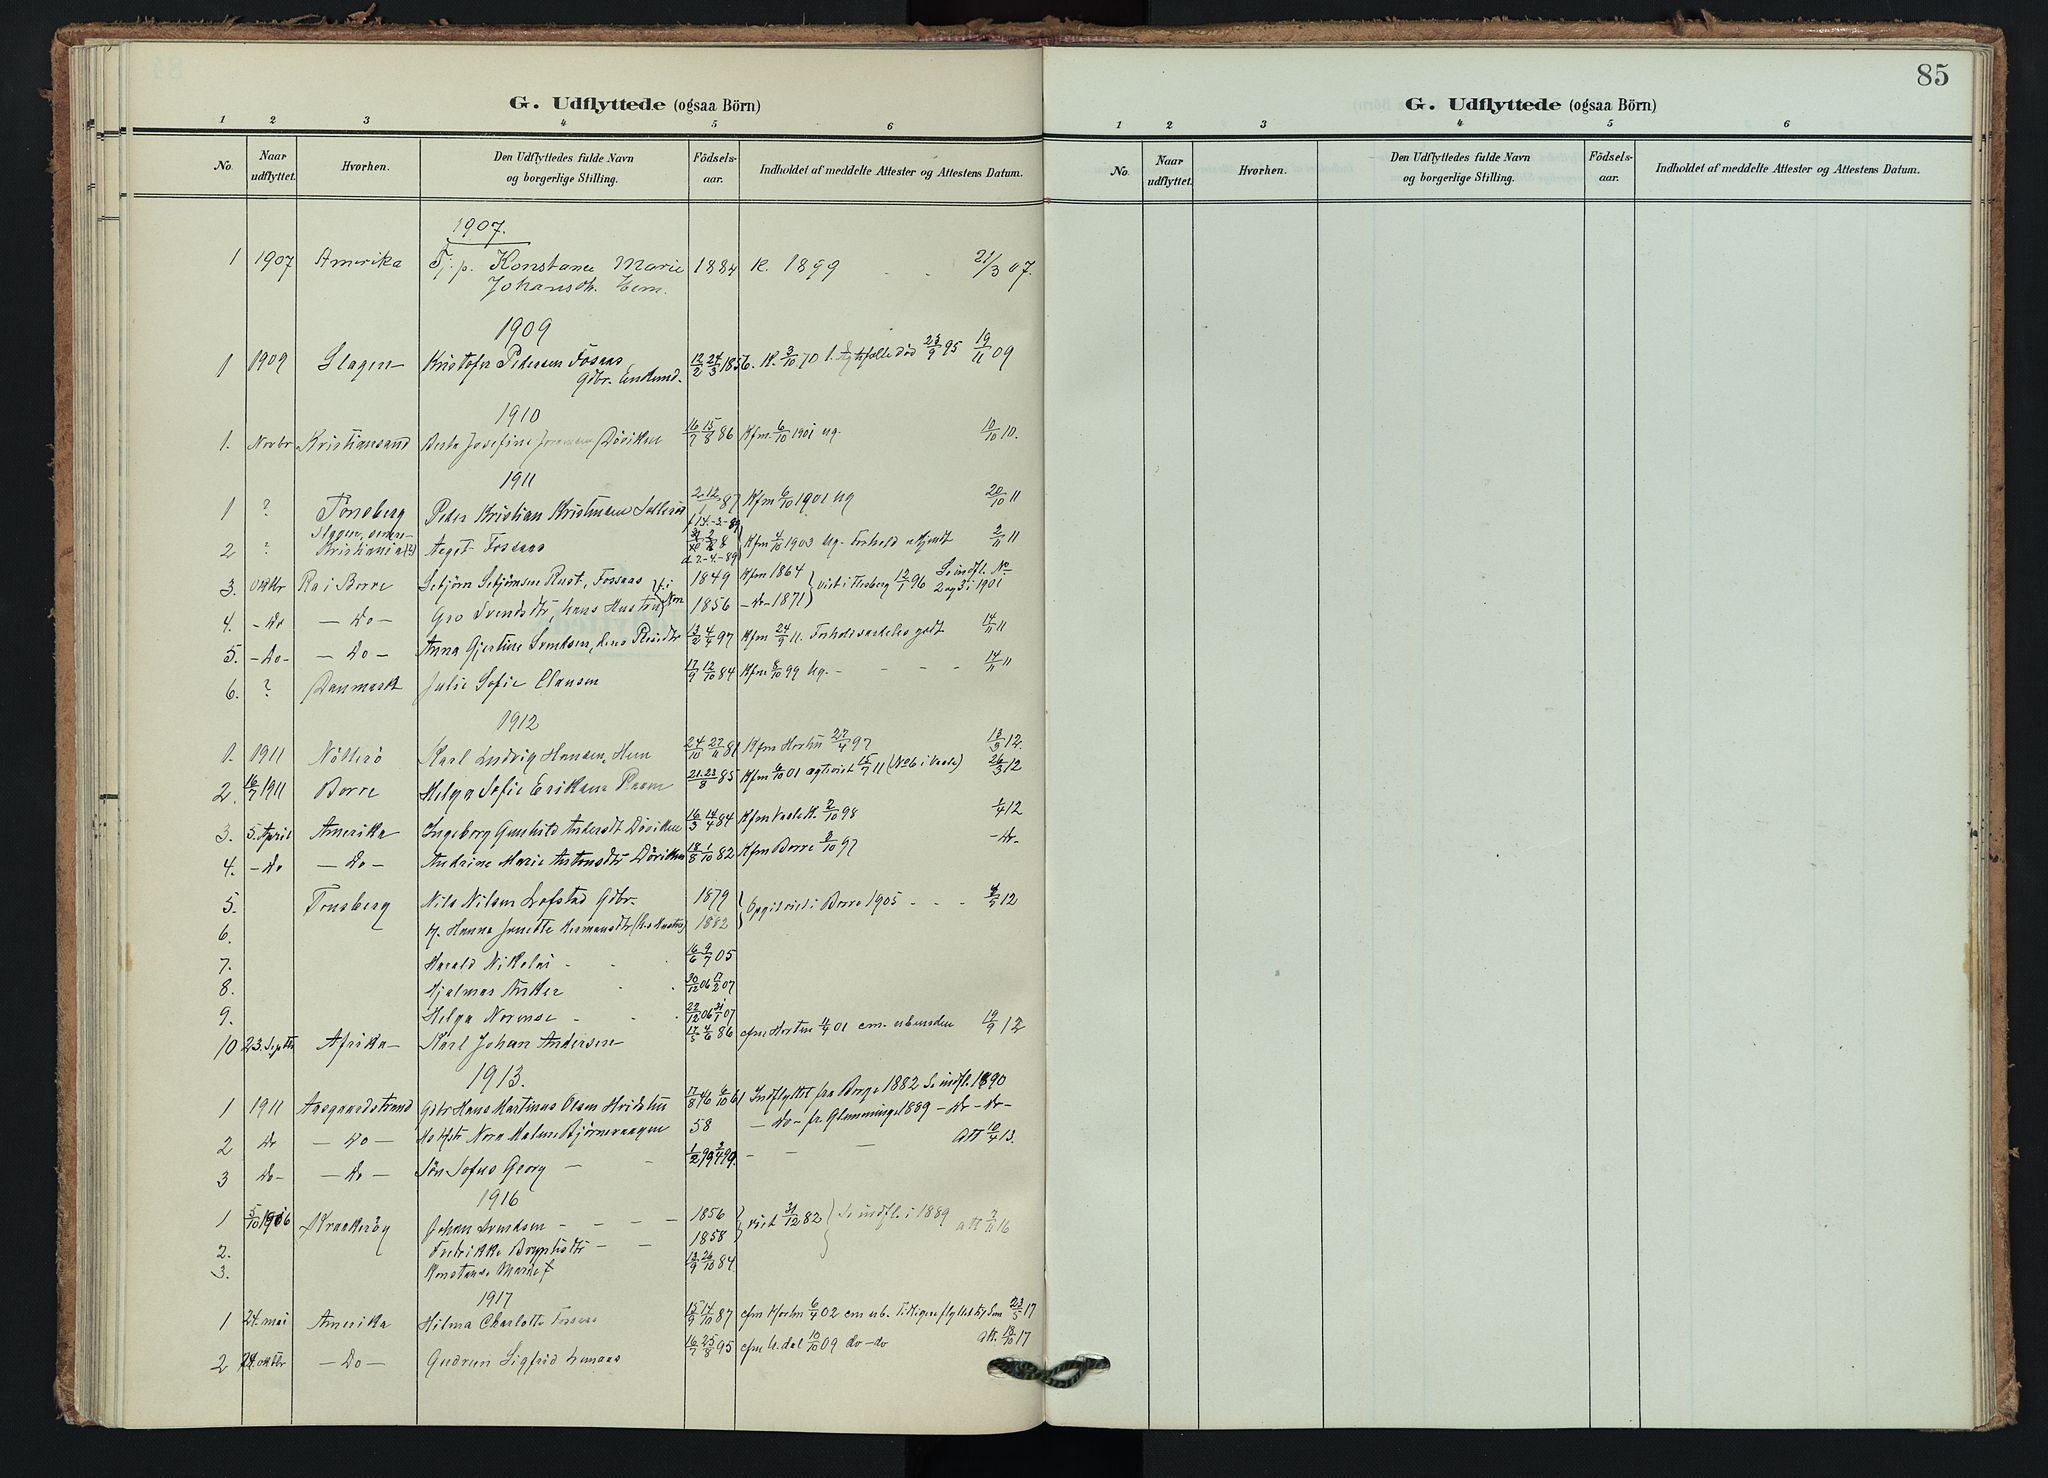 G. Udflyttede (ogsaa Börn)
1 2 3 4 5 6
No. Naar udflyttet. Hvorhen. Den Udflyttedes fulde Navn og borgerlige Stilling. Födsels-aar. Indholdet af meddelte Attester og Attestens Datum.
1907.
1 1907 Amerika Tj. p. Konstance Marie 1884 K. 1899 21/3 07.
Johansdtr. Hem.
1909
1 1909 Slagen Kristofer Pedersen Fosaas 12/2 24/3 1856. K. 3/10 70 Ægtefælle död 23/9 95 19/11 09
Gdbr. Enkemd.
1910
1. Novbr Kristiansand Berta Josefine Döviken 16/7 15/8 86 Kfm. 6/10 1901 ug. 10/10 10.
1911
1 ? Tönsberg Peder Kristian Kristensen 87 Kfm 6/10 1901 Ug 20/10 11
f 14-3-89
2 ? Slagen, senere Kristiania (?) Aagot Fossaas Kfm 4/10 1903 Ug. Forhold ukjendt 2/11 11
d. 7-4-89
3. Oktbr Ra i Borre Fossaas 1849 Kfm 1864 viet i 12/1 96 Se indfl. No 2 og 3 i 1901
4. - Do - Do - Gro Svendsdtr, hans Hustru 1856 - do - 1871
5. - Do - - Do - Anna Gjertine Svendsen, hans Pleiedtr 13/2 4/4 97 Kfm 24/9 11. Forhold godt 14/11 11
6. ? Danmark Julie Sofie Clausen 17/9 12/10 84 Kfm 8/10 99 Ug. - - - - 14/11 11
1912
1. 1911 Nötterö Karl Ludvig Hansen, Hem 24/10 27/11 81 Kfm Horten 27/4 97 13/3 12.
2. 16/7 1911 Borre Helga Sofie Eriksen 21/8 23/8 85 Kfm 6/10 01 ægteviet 15/7 11 (No 6 i Vaale) 26/3 12
3. 5. April Amerika Ingeborg Gunhild Andersdt Döviken 16/3 14/4 84 Kfm Vaale K. 2/10 98 1/4 12
4. - Do - Do - Andrine Marie Antonsdtr Döviken 18/8 1/10 82 Kfm Borre 3/10 97 - do -
5. Tönsberg Nils Nilsen Lofstad Gdbr. 1879 Opgit viet i Borre 1905 - - - 4/5 12
6. H. Hanna Jenette Hermansdtr (hs Hustru) 1882
7. Harald Nikolai - - - 16/6 9/7 05
8. Hjalmar Anker - - 30/12 06 17/2 07
9. Helga - - - 22/12 06 31/1 07
10 23. Septbr Afrika - Karl Johan Andersen 17/5 4/6 86 cfm Horten 4/4 01 19/9 12
1913.
1 1911 Aasgaardstrand Gdbr Hans Martinus Olsen 17/8 46 6/10 61 Indflyttet fra Borge 1882 Se indfl. 1890
2 Do - Do - Nora Bjørnevaagen 58 - do - fr. Glemminge 1889 - do - do -
Att 10/4 13.
3 Do - - do - Søn Sofus Georg - - 1/2 99 2/4 99. - -
1916
1 5/10 1916 Johan Svendsen - - - 1856 viet 31/12 82 Se indfl. i 1889 att 7/11 16
2. Fredrikke - - 1858
3. Konstanse Marie 13/9 26/10 84
1917
1 24. mai Amerika Hilma Charlotte Fossaas 15/9 14/10 87 cfm Horten 6/4 02 Tidligere flyttet 23/5 17
2 24. oktbr - Do - Gudrun Sigfrid 16/7 25/8 95 cfm U. dal 10/10 09 do - do Att. 18/10 17
85
G. Udflyttede (ogsaa Börn)
1 2 3 4 5 6
No. Naar udflyttet. Hvorhen. Den Udflyttedes fulde Navn og borgerlige Stilling. Födsels-aar. Indholdet af meddelte Attester og Attestens Datum.